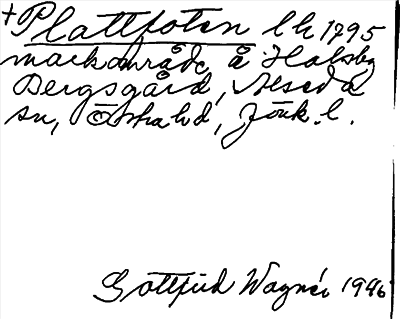 + Plattfoten l h 1795
markområde å Holsby
Bergsgård, Alseda
sn, Östra hd, Jönk. l.
Gottfrid Wagnér 1946